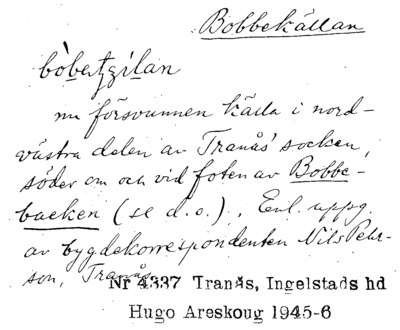 Bobbekällan
bòbetzịlan
nu försvunnen källa i nord-
västra delen av Tranås' socken,
söder om och vid foten av Bobbe-
backen (se d.o.). Enl. uppg.
av bygdekorrespondenten Nils Pehr-
son, Tranås.
Nr 4337 Tranås, Ingelstads hd
Hugo Areskoug 1945-6